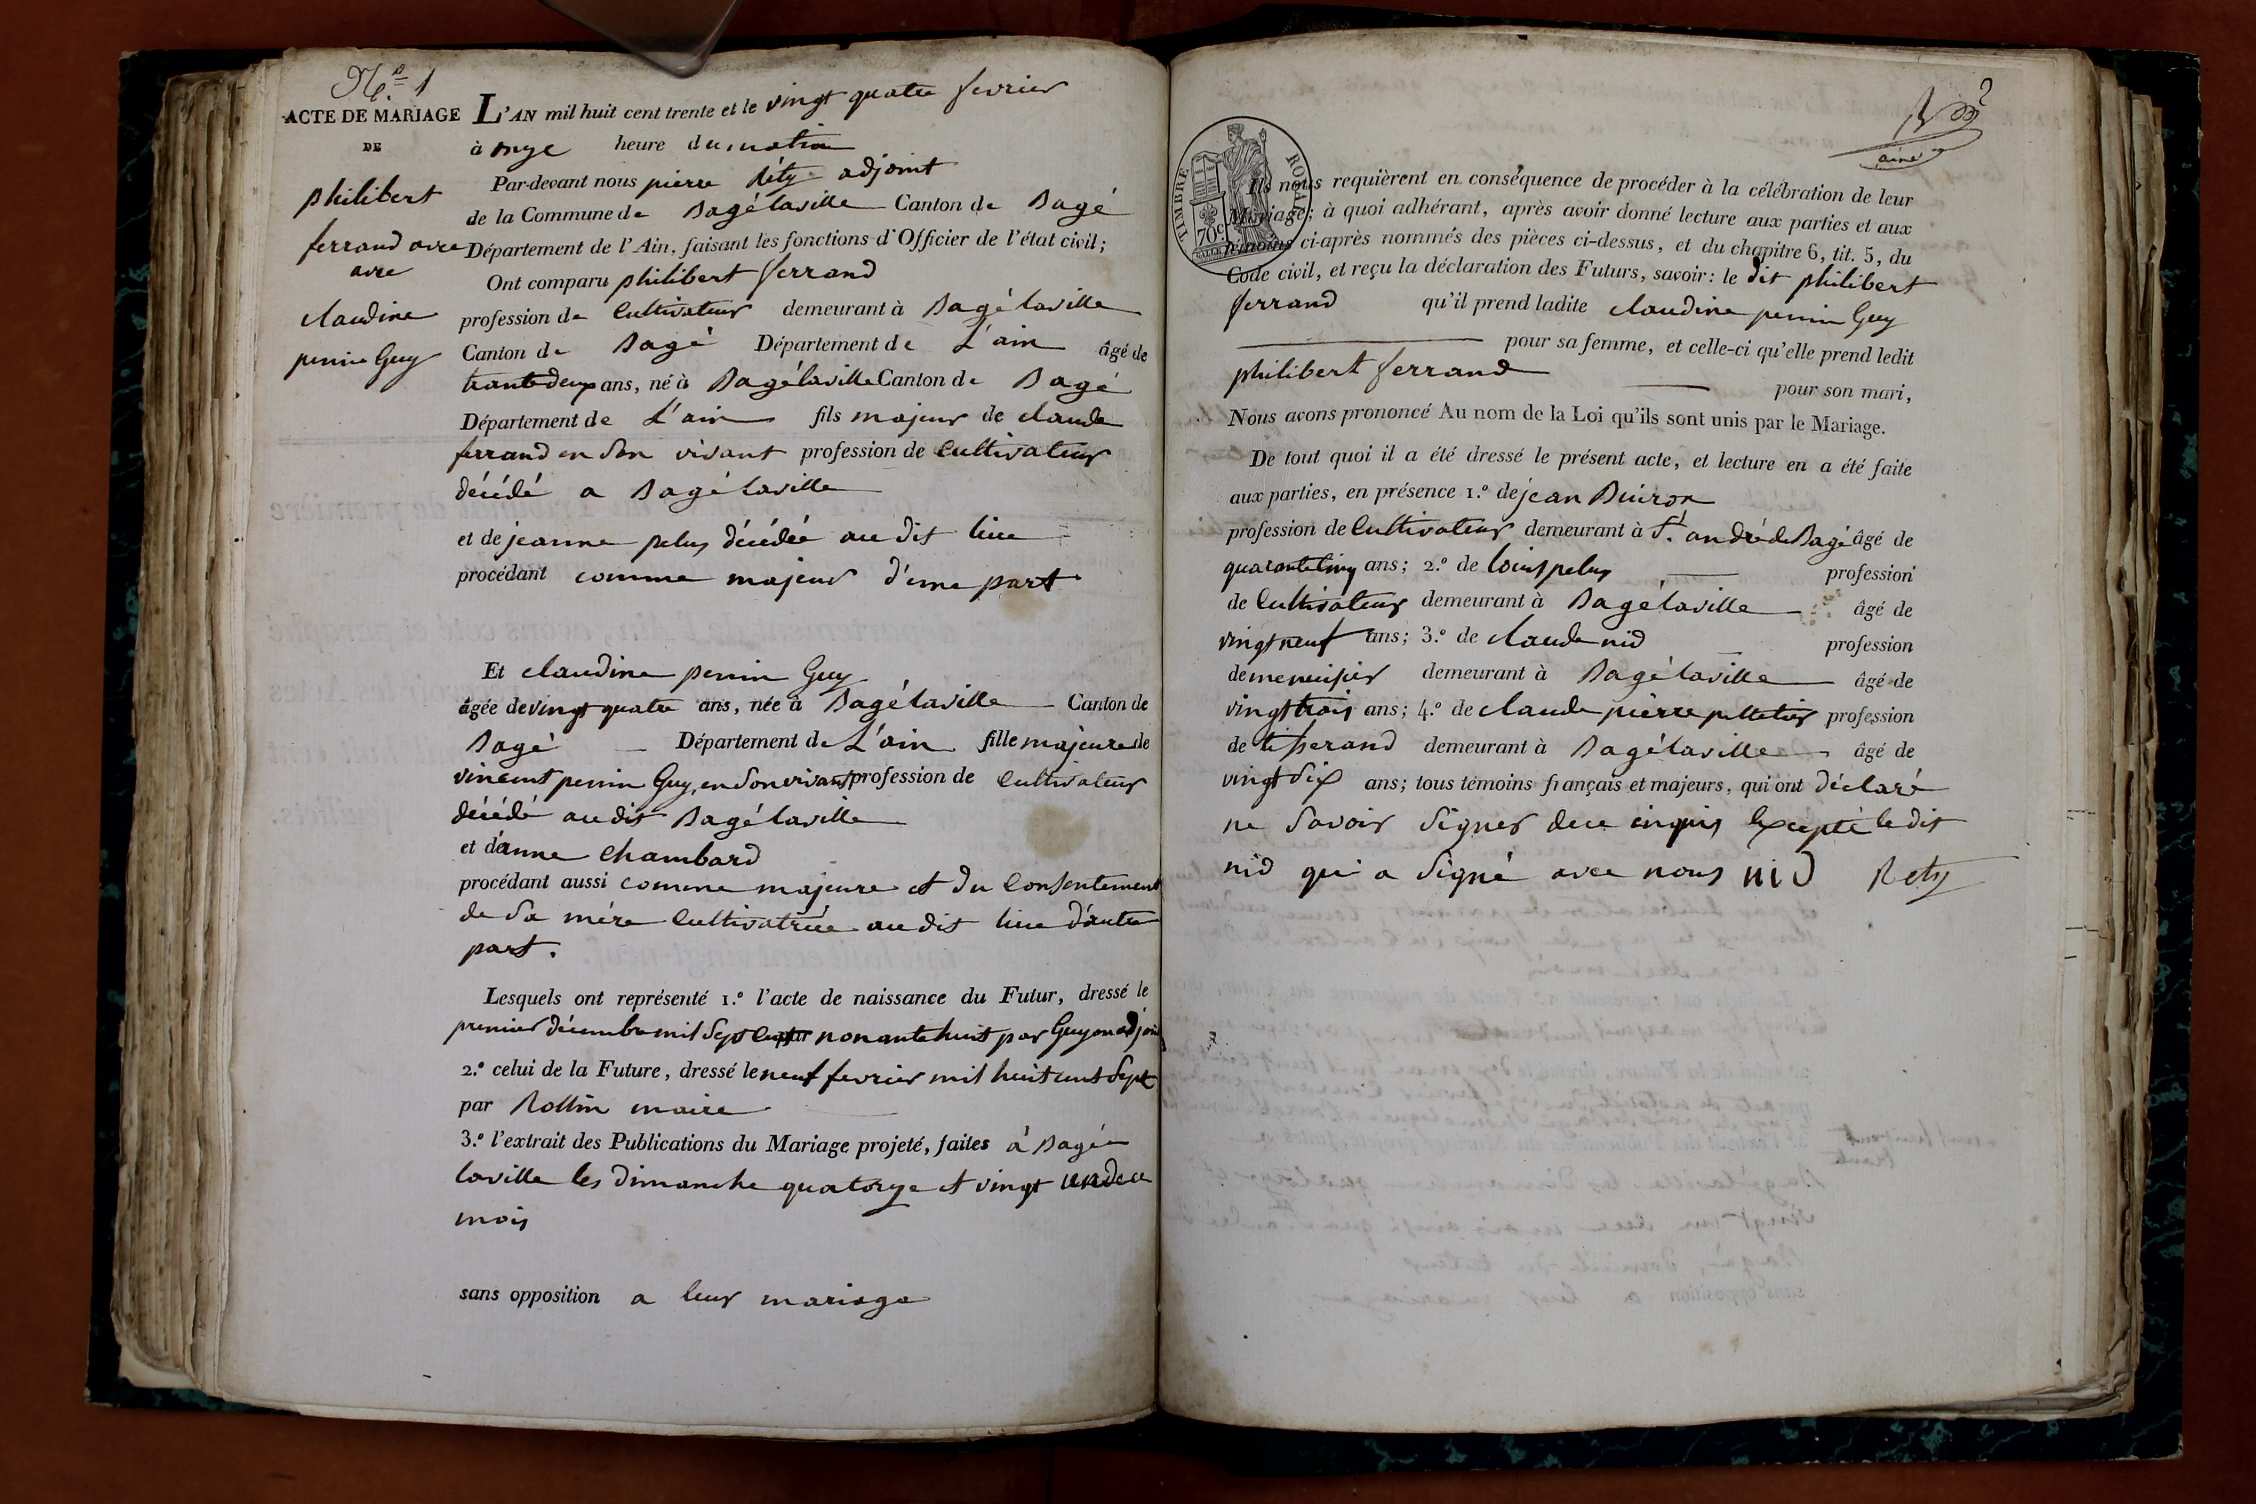 N.º 1
ACTE DE MARIAGE
DE
philibert
ferrand avec
avec
claudine
perrin Guy
L'AN mil huit cent trente et le vingt quatre fevrier
à onze heure du matin
Par-devant nous pierre Réty adjoint
de la Commune de Bagé laville Canton de Bagé
Département de l'Ain, faisant les fonctions d'Officier de l'état civil;
Ont comparu philibert ferrand
profession de Cultivateur demeurant à Bagé laville
Canton de Bagé Département de L'ain âgé de
trante deux ans, né à Bagé laville Canton de Bagé
Département de L'ain fils majeur de claude
ferrand en son vivant profession de Cultivateur
décédé a Bagé laville
et de jeanne pelus décédée au dit lieu
procédant comme majeur d'une part
Et claudine perrin Guy
âgée de vingt quatre ans, née à Bagé laville Canton de
Bagé Département de L'ain fille majeure de
vincent perrin Guy, en son vivant profession de Cultivateur
décédé au dit Bagé laville
et d'anne Chambard
procédant aussi comme majeure et du Consentement
de Sa mére Cultivatrice au dit lieu d'autre
part.
Lesquels ont représenté 1.º l'acte de naissance du Futur, dressé le
premier décembre mil Sept Cent nonante huit par Guyon adjoint
2.º celui de la Future, dressé le neuf fevrier mil huit cent Sept
par Rollin maire
3.º l'extrait des Publications du Mariage projeté, faites à Bagé
laville les dimanche quatorze et vingt un de ce
mois
sans opposition a leur mariage
2
ainé
TIMBRE ROYAL
70c.
Ils nous requièrent en conséquence de procéder à la célébration de leur
Mariage; à quoi adhérant, après avoir donné lecture aux parties et aux
témoins ci-après nommés des pièces ci-dessus, et du chapitre 6, tit. 5, du
Code civil, et reçu la déclaration des Futurs, savoir: le dit philibert
ferrand qu'il prend ladite claudine perrin Guy
pour sa femme, et celle-ci qu'elle prend ledit
philibert ferrand pour son mari,
Nous avons prononcé Au nom de la Loi qu'ils sont unis par le Mariage.
De tout quoi il a été dressé le présent acte, et lecture en a été faite
aux parties, en présence 1.º de jean Buiron
profession de Cultivateur demeurant à St. andré de Bagé âgé de
quarante cinq ans; 2.º de louis pelus profession
de Cultivateur demeurant à Bagé laville âgé de
vingt neuf ans; 3.º de claude nid profession
de menuisier demeurant à Bagé laville âgé de
vingt trois ans; 4.º de claude pierre pelletier profession
de tisserand demeurant à Bagé laville âgé de
vingt Six ans; tous témoins français et majeurs, qui ont déclaré
ne Savoir Signer de ce enquis Excepté le dit
nid qui a Signé avec nous NID Rety